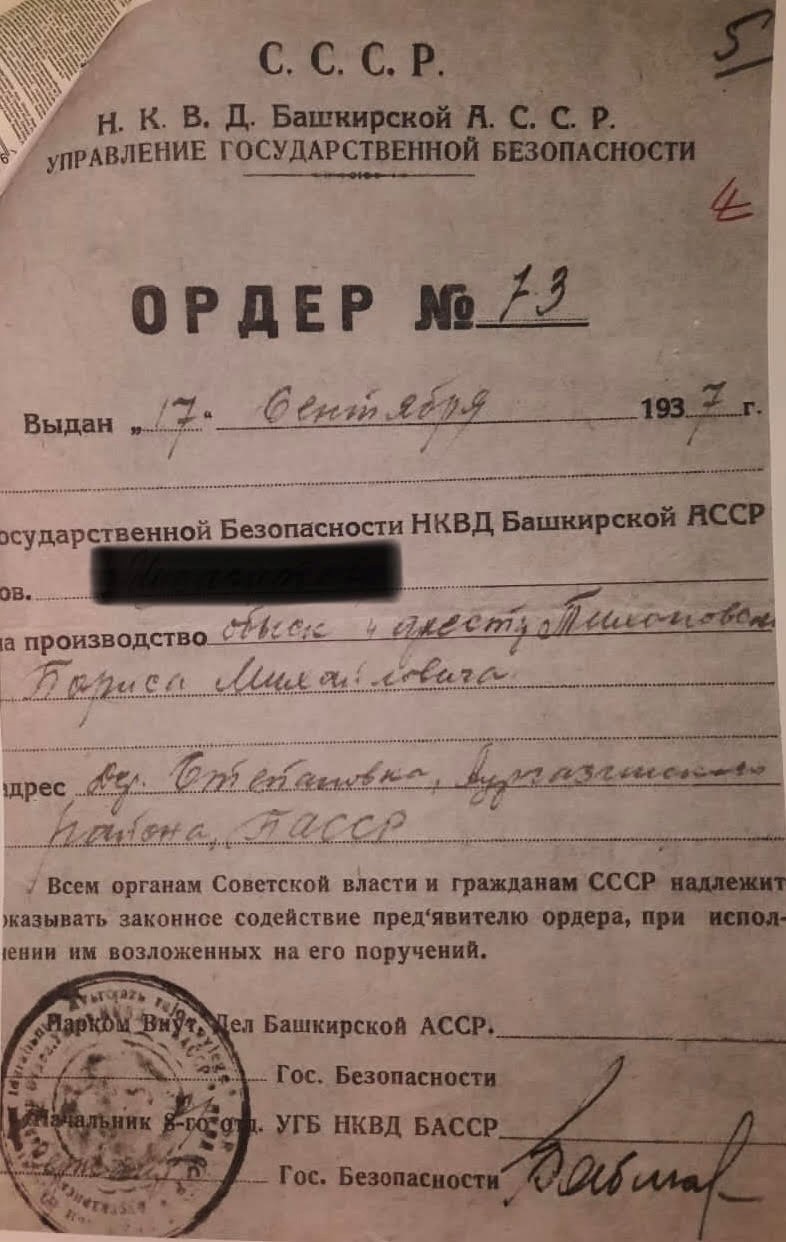 5
С. С. С. Р.
Н. К. В. Д. Башкирской А. С. С. Р.
УПРАВЛЕНИЕ ГОСУДАРСТВЕННОЙ БЕЗОПАСНОСТИ
4
ОРДЕР № 73
Выдан „17“ Сентября 1937 г.
осударственной Безопасности НКВД Башкирской АССР
ов.
на производство обыск и аресту Тихановск
Бориса Михайловича
адрес дер. Степановка, Аургазинского
района, БАССР
Всем органам Советской власти и гражданам СССР надлежит
оказывать законное содействие пред'явителю ордера, при испол-
нении им возложенных на его поручений.
Нарком Внут. Дел Башкирской АССР.
Гос. Безопасности
Начальник 8-го отд. УГБ НКВД БАССР
Гос. Безопасности